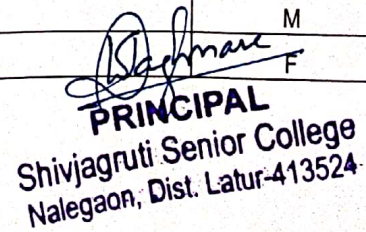 M
F
PRINCIPAL
Shivjagruti Senior College
Nalegaon, Dist. Latur-413524